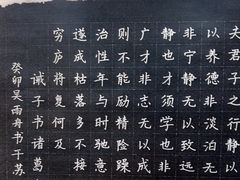 夫君子之行静以
以养德非淡泊无
非宁静无以致远
静也才须学也非
广才非志无以成
则不能励精险躁
治性年与时驰意
遂成枯落多不接
穷庐将复何及
诫子书诸葛
癸卯吴雨舟书于苏